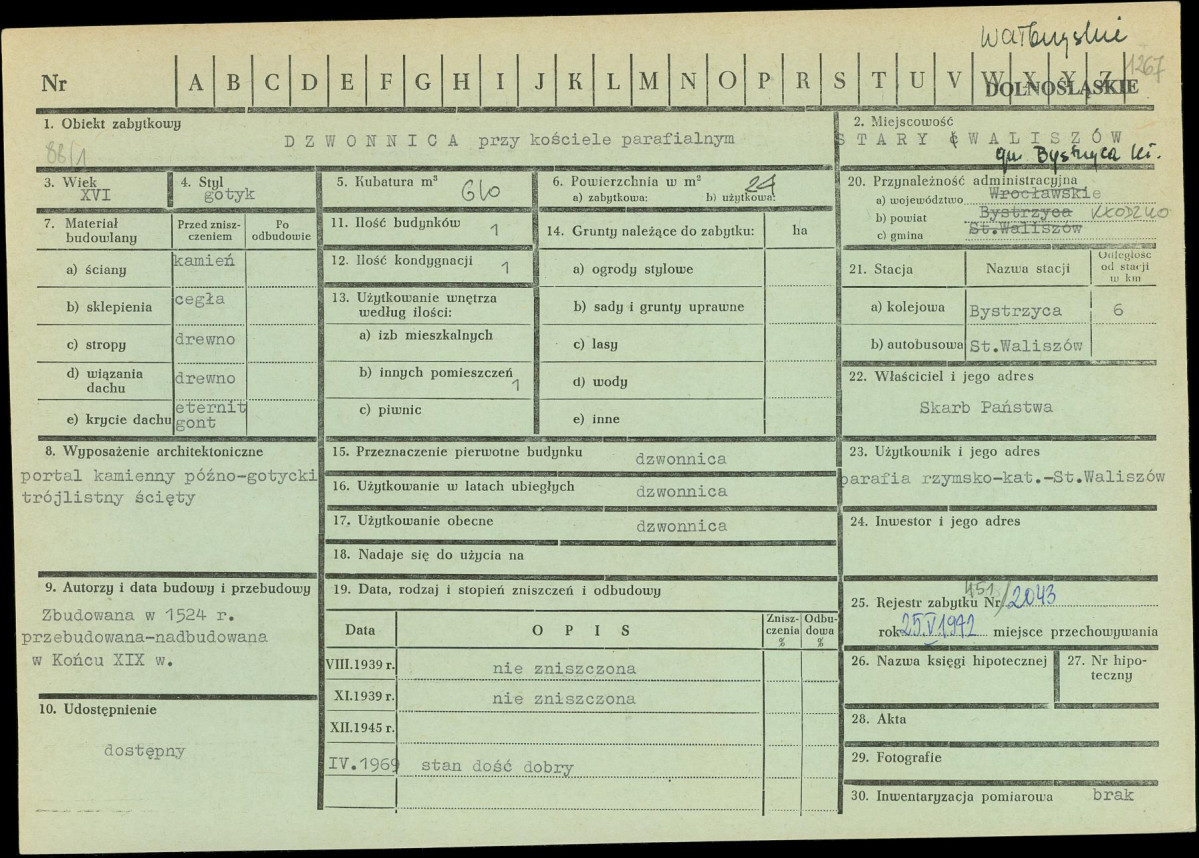 Wałbrzyskie
1267
Nr A B C D E F G H I J K L M N O P R S T U V W X Y Z
DOLNOŚLĄSKIE
1. Obiekt zabytkowy
DZWONNICA przy kościele parafialnym
88/1
2. Miejscowość
STARY WALISZÓW
gm. Bystrzyca Kł.
3. Wiek
XVI
4. Styl
gotyk
5. Kubatura m³
610
6. Powierzchnia w m²
24
a) zabytkowa: b) użytkowa:
7. Materiał budowlany
Przed zniszczeniem
Po odbudowie
a) ściany kamień
b) sklepienia cegła
c) stropy drewno
d) wiązania dachu drewno
e) krycie dachu eternit gont
11. Ilość budynków 1
12. Ilość kondygnacji 1
13. Użytkowanie wnętrza według ilości:
a) izb mieszkalnych
b) innych pomieszczeń 1
c) piwnic
14. Grunty należące do zabytku: ha
a) ogrody stylowe
b) sady i grunty uprawne
c) lasy
d) wody
e) inne
20. Przynależność administracyjna
a) województwo Wrocławskie
b) powiat Bystrzyca KŁODZKO
c) gmina St.Waliszów
21. Stacja Nazwa stacji Odległość od stacji w km
a) kolejowa Bystrzyca 6
b) autobusowa St.Waliszów
22. Właściciel i jego adres
Skarb Państwa
8. Wyposażenie architektoniczne
portal kamienny późno-gotycki
trójlistny ścięty
15. Przeznaczenie pierwotne budynku dzwonnica
16. Użytkowanie w latach ubiegłych dzwonnica
17. Użytkowanie obecne dzwonnica
18. Nadaje się do użycia na
23. Użytkownik i jego adres
parafia rzymsko-kat.-St.Waliszów
24. Inwestor i jego adres
9. Autorzy i data budowy i przebudowy
Zbudowana w 1524 r.
przebudowana-nadbudowana
w Końcu XIX w.
10. Udostępnienie
dostępny
19. Data, rodzaj i stopień zniszczeń i odbudowy
Data OPIS Zniszczenia % Odbudowa %
VIII.1939 r. nie zniszczona
XI.1939 r. nie zniszczona
XII.1945 r.
IV.1969 stan dość dobry
25. Rejestr zabytku Nr 2043
rok 25 V 1972 miejsce przechowywania
26. Nazwa księgi hipotecznej
27. Nr hipoteczny
28. Akta
29. Fotografie
30. Inwentaryzacja pomiarowa brak